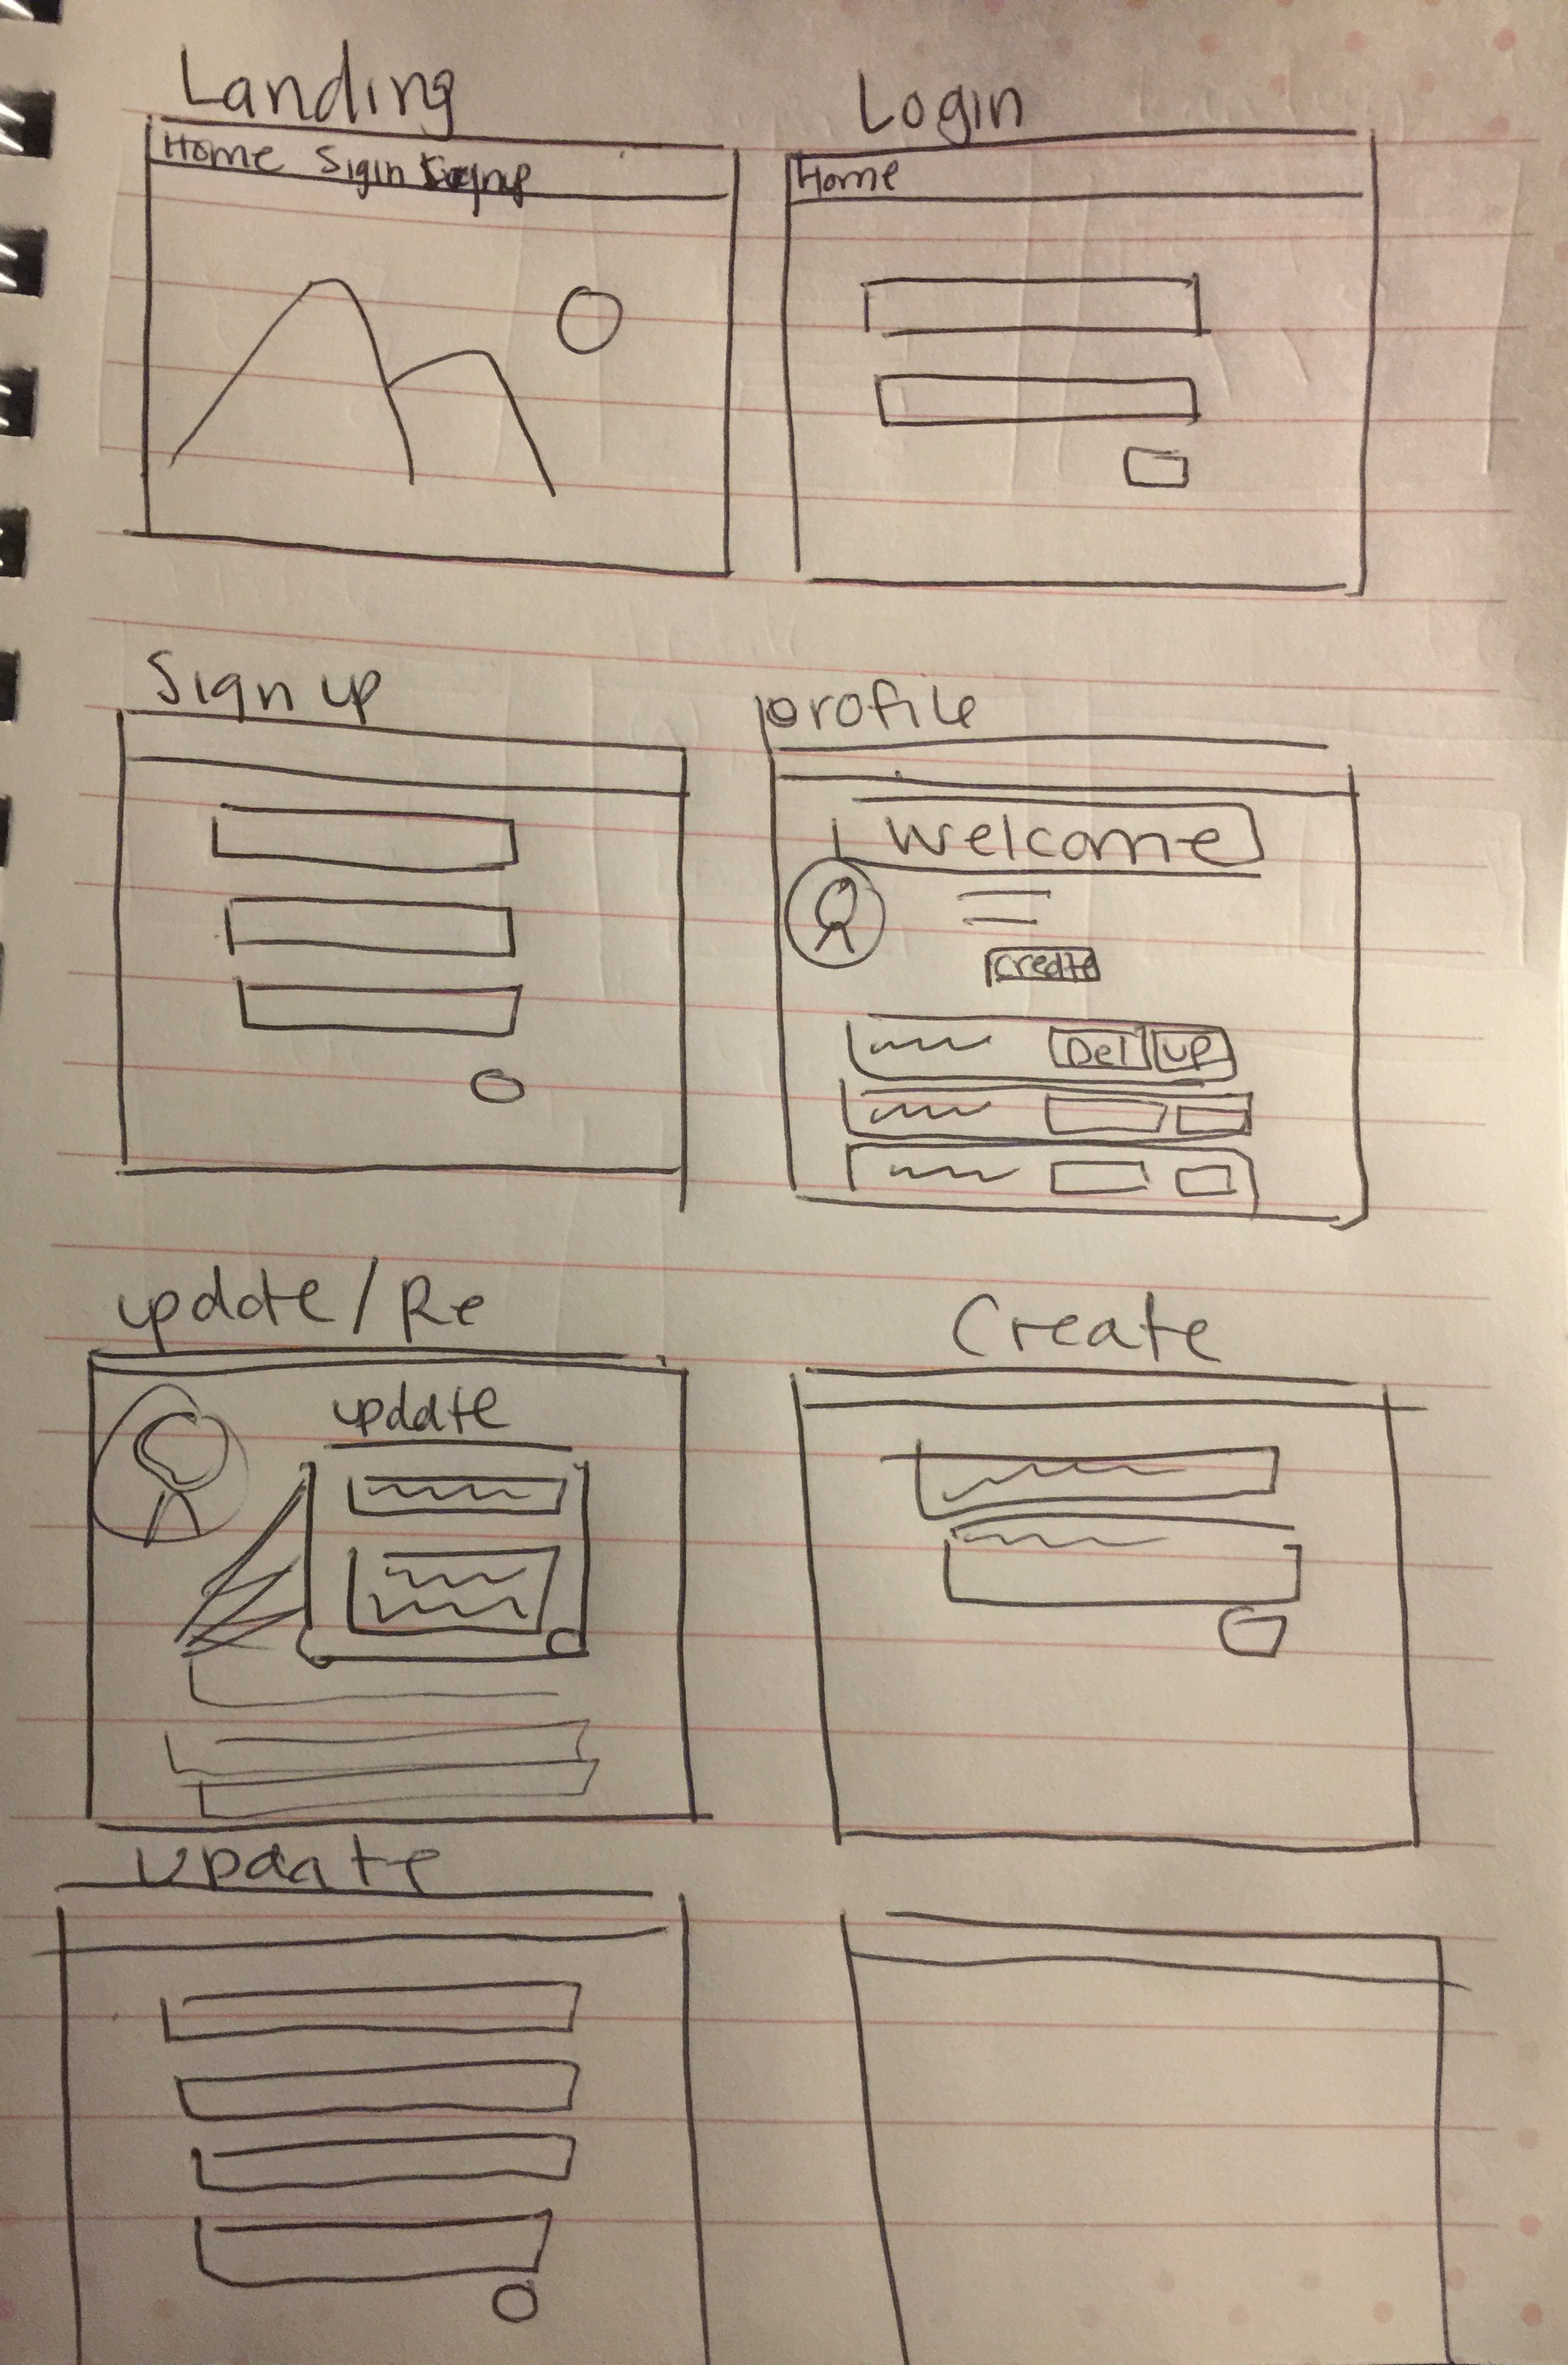 Landing
Login
Home Sigin Signup
Home
Sign up
profile
Welcome
Create
Del up
update / Re
Create
update
Update